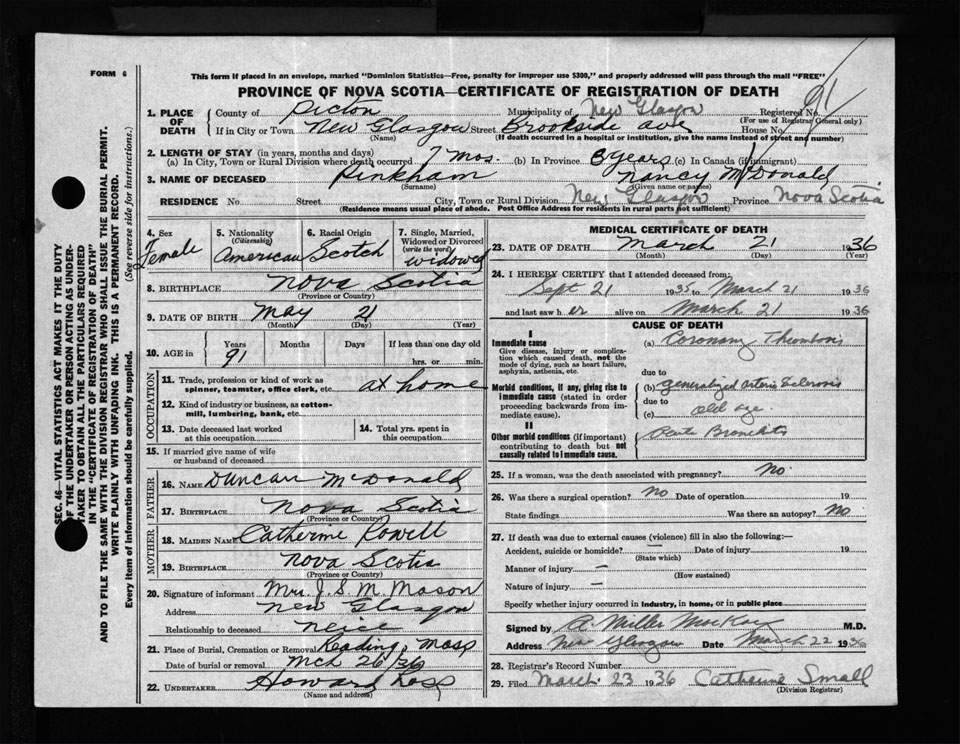 FORM 6
This form if placed in an envelope, marked "Dominion Statistics—Free, penalty for improper use $300," and properly addressed will pass through the mail "FREE"
PROVINCE OF NOVA SCOTIA—CERTIFICATE OF REGISTRATION OF DEATH
1. PLACE OF DEATH
County of Pictou Municipality of New Glasgow Registered No.
(For use of Registrar General only)
If in City or Town New Glasgow Street Brookside Ave House No.
(Name) (If death occurred in a hospital or institution, give the name instead of street and number)
2. LENGTH OF STAY (in years, months and days)
(a) In City, Town or Rural Division where death occurred 7 mos. (b) In Province 3 years (c) In Canada (if immigrant)
3. NAME OF DECEASED Pinkham Nancy McDonald
(Surname) (Given name or names)
RESIDENCE No. Street City, Town or Rural Division New Glasgow Province Nova Scotia
(Residence means usual place of abode. Post Office Address for residents in rural parts not sufficient)
4. Sex Female
5. Nationality (Citizenship) American
6. Racial Origin Scotch
7. Single, Married, Widowed or Divorced (write the word) widowed
8. BIRTHPLACE Nova Scotia
(Province or Country)
9. DATE OF BIRTH May 21
(Month) (Day) (Year)
10. AGE in Years 91 Months Days If less than one day old hrs. or min.
OCCUPATION
11. Trade, profession or kind of work as spinner, teamster, office clerk, etc. at home
12. Kind of industry or business, as cotton-mill, lumbering, bank, etc.
13. Date deceased last worked at this occupation
14. Total yrs. spent in this occupation
15. If married give name of wife or husband of deceased
FATHER
16. NAME Duncan McDonald
17. BIRTHPLACE Nova Scotia
(Province or Country)
MOTHER
18. MAIDEN NAME Catherine Powell
19. BIRTHPLACE Nova Scotia
(Province or Country)
20. Signature of informant Mrs. J. S. M. Mason
Address New Glasgow
Relationship to deceased neice
21. Place of Burial, Cremation or Removal Reading, Mass
Date of burial or removal Mch 26/36
22. UNDERTAKER Howard
(Name and address)
MEDICAL CERTIFICATE OF DEATH
23. DATE OF DEATH March 21 1936
(Month) (Day) (Year)
24. I HEREBY CERTIFY that I attended deceased from:
Sept 21 1935 to March 21 1936
and last saw her alive on March 21 1936
CAUSE OF DEATH
I
Immediate cause
Give disease, injury or complication which caused death, not the mode of dying, such as heart failure, asphyxia, asthenia, etc.
(a) Coronary Thrombosis
due to
Morbid conditions, if any, giving rise to immediate cause (stated in order proceeding backwards from immediate cause).
(b) generalized arterio sclerosis
due to
(c) old age.
II
Other morbid conditions (if important) contributing to death but not causally related to immediate cause.
Acute Bronchitis
25. If a woman, was the death associated with pregnancy? No.
26. Was there a surgical operation? No Date of operation 19
State findings Was there an autopsy? No
27. If death was due to external causes (violence) fill in also the following:—
Accident, suicide or homicide? — Date of injury 19
(State which)
Manner of injury —
(How sustained)
Nature of injury —
Specify whether injury occurred in industry, in home, or in public place
Signed by A. Miller MacKay M.D.
Address New Glasgow Date March 22 1936
28. Registrar's Record Number
29. Filed March 23 1936 Catherine Small
(Division Registrar)
SEC. 46- VITAL STATISTICS ACT MAKES IT THE DUTY
OF THE UNDERTAKER OR PERSON ACTING AS UNDER-
TAKER TO OBTAIN ALL THE PARTICULARS REQUIRED
IN THE "CERTIFICATE OF REGISTRATION OF DEATH"
AND TO FILE THE SAME WITH THE DIVISION REGISTRAR WHO SHALL ISSUE THE BURIAL PERMIT.
WRITE PLAINLY WITH UNFADING INK. THIS IS A PERMANENT RECORD.
Every item of information should be carefully supplied. (See reverse side for instructions.)